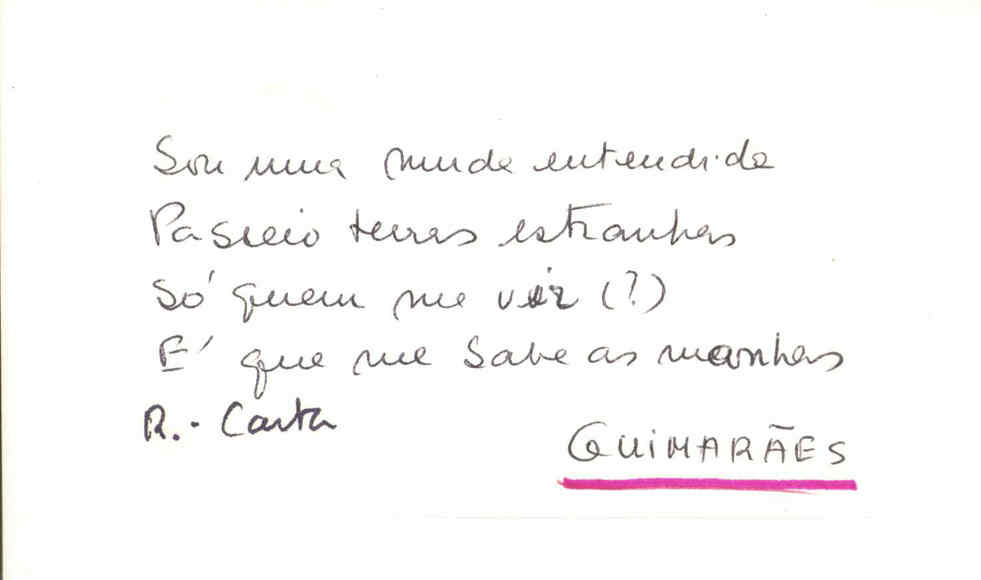 Sou uma muda entendida
Passeio terras estranhas
Só quem me vir (?)
É que me sabe as manhas
R.- Carta
GUIMARÃES